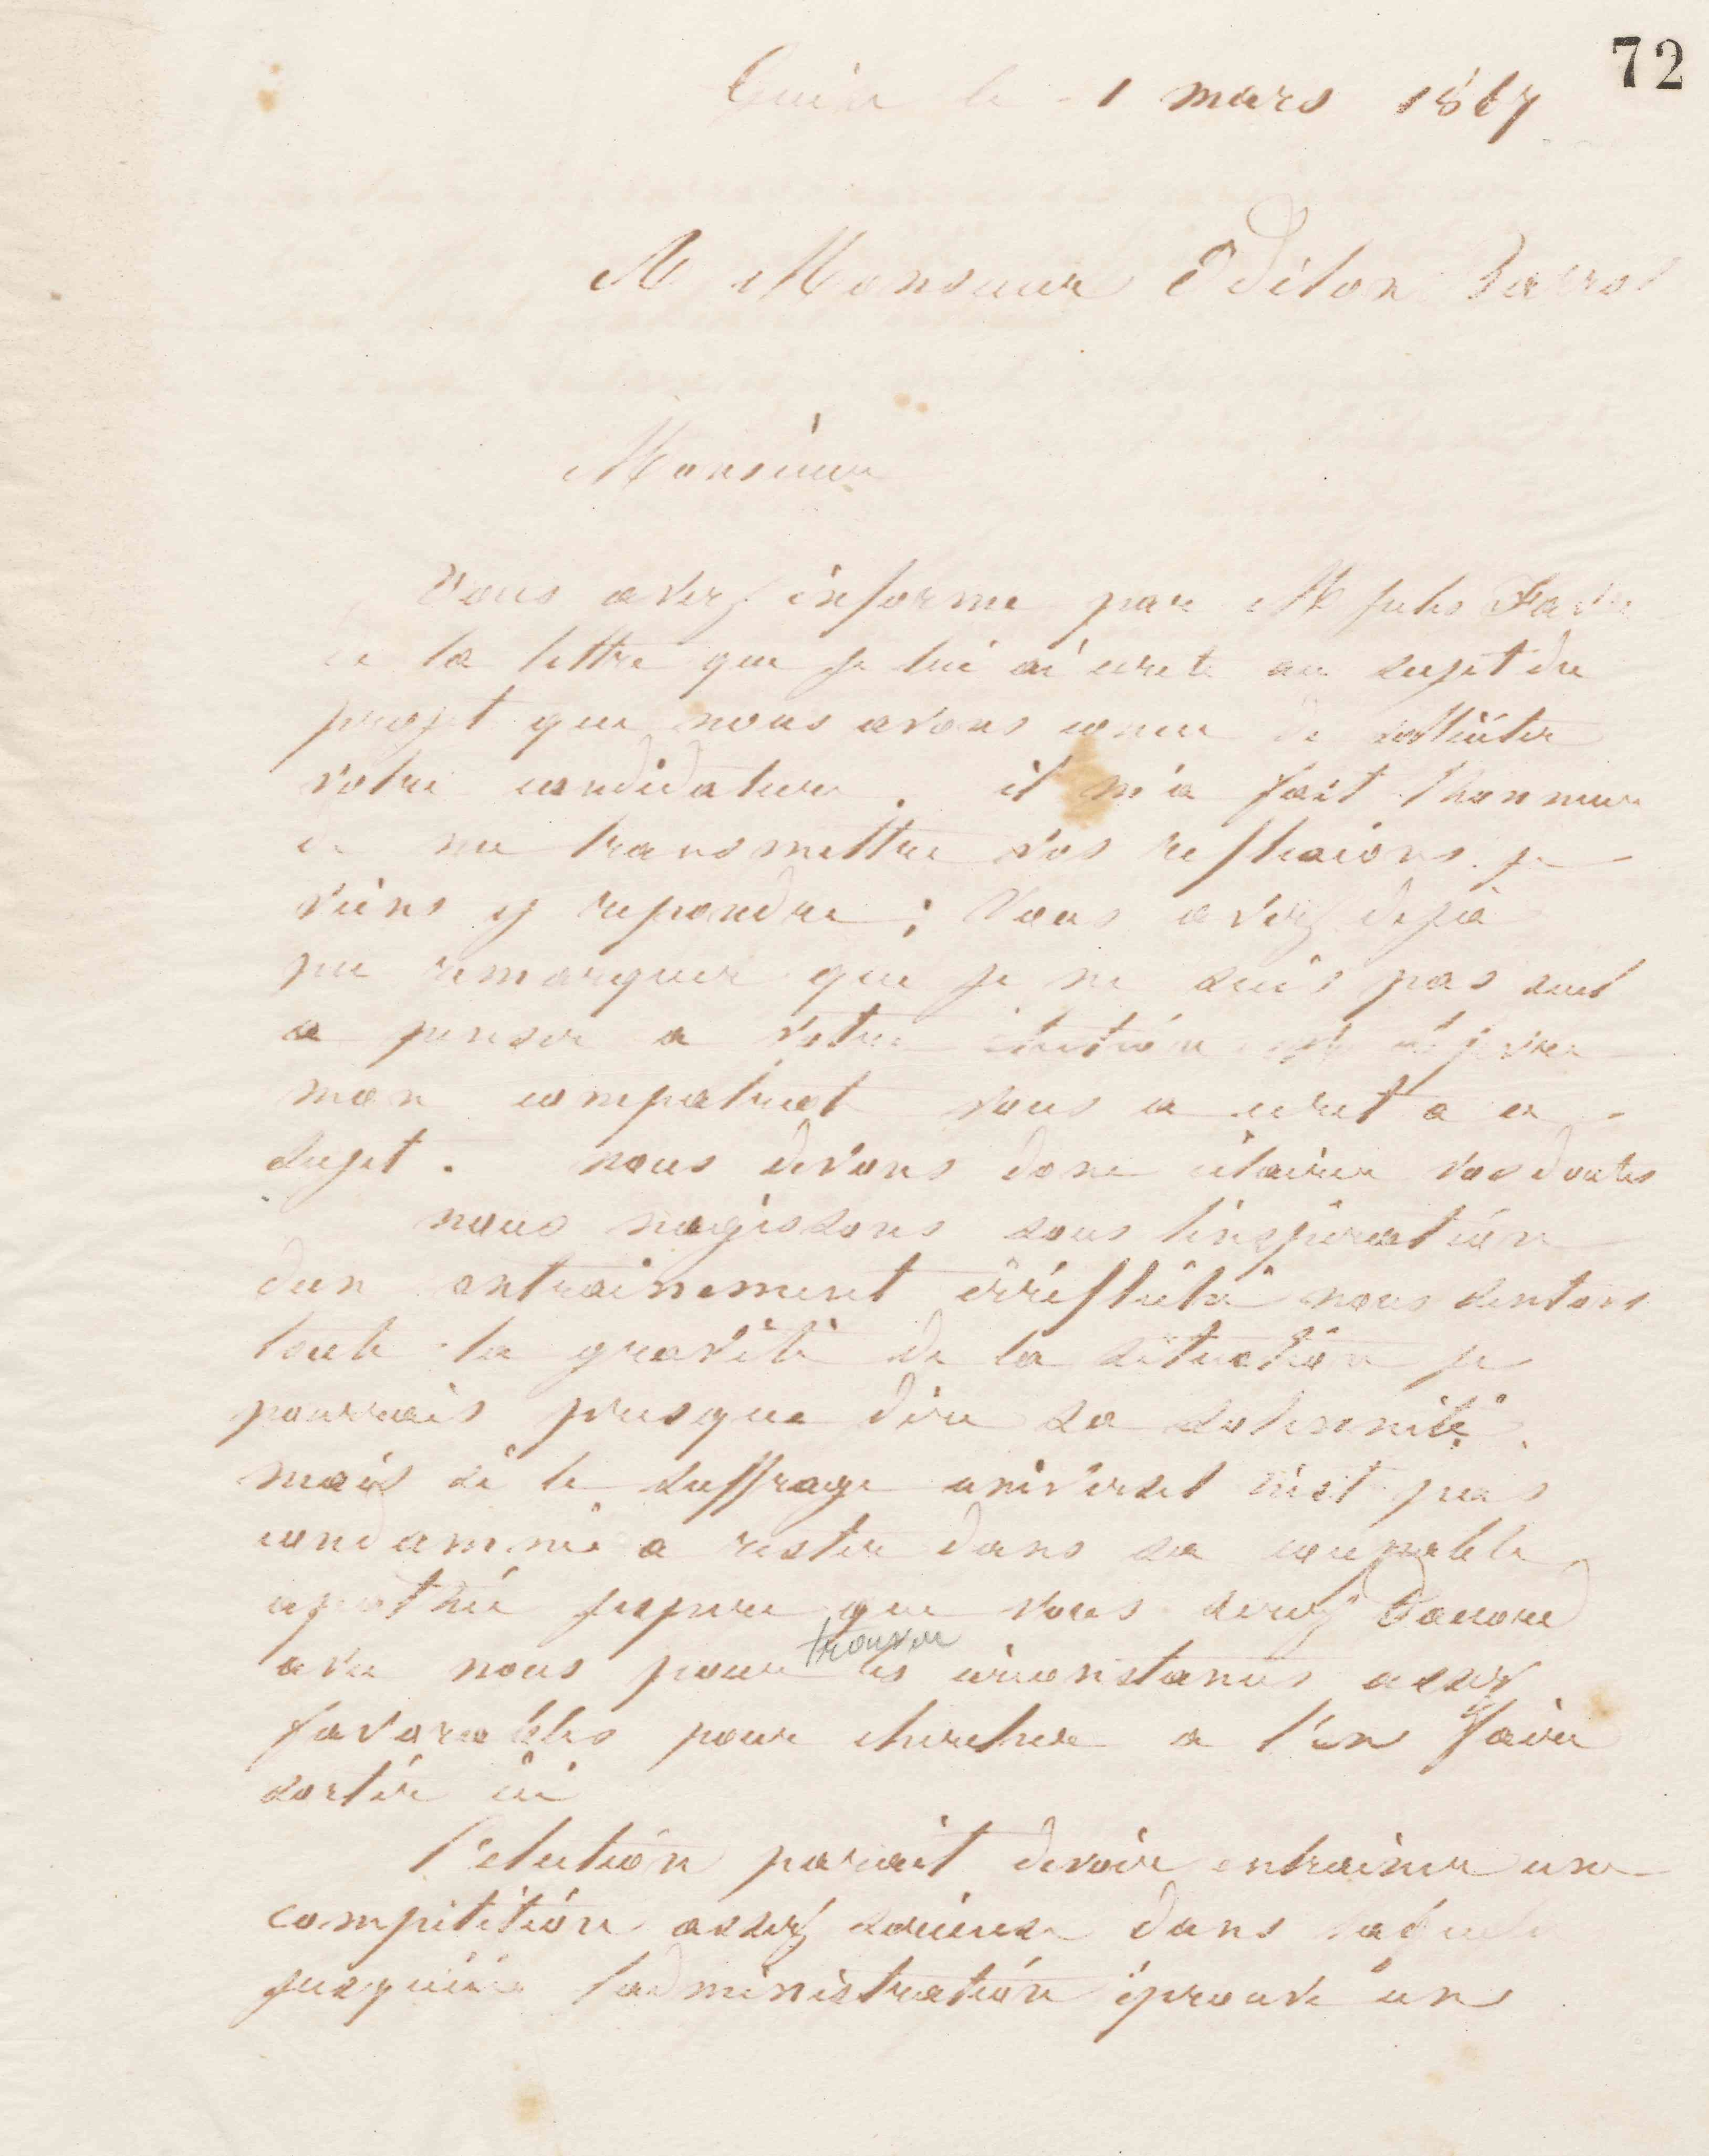 72
Guise le 1 mars 1867
A Monsieur Odilon Barrot
Monsieur
Vous avez informé par M Jules Favre
de la lettre que je lui ai ecrite au sujet du
projet que nous avons concu de solliciter
votre candidature. il m'a fait l'honneur
de me transmettre vos reflexions. je
viens y repondre ; Vous avez deja
pu remarquer que je ne suis pas seul
a penser a votre election
mon compatriot vous a ecrit a ce
sujet. nous devons donc eclairer vos doutes
nous nagissons sous l'inspiration
dun entrainement irréfléchi nous sentons
toute la gravité de la situation je
pourrais presque dire sa solennité.
mais si le suffrage universel n'est pas
condamné a rester dans sa coupable
apathie jespere que vous serez daccord
avec nous pour trouver les circonstances assez
favorables pour chercher a l'en faire
sortir ici
l'election parait devoir entrainer une
compétition assez serieuse dans laquelle
jusquici ladministration éprouve un